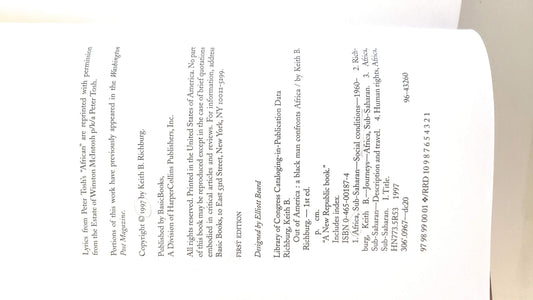 Lyrics from Peter Tosh's "African" are reprinted with permission
from the Estate of Winston McIntosh p/k/a Peter Tosh.
Portions of this work have previously appeared in the Washington
Post Magazine.
Copyright © 1997 by Keith B. Richburg.
Published by BasicBooks,
A Division of HarperCollins Publishers, Inc.
All rights reserved. Printed in the United States of America. No part
of this book may be reproduced except in the case of brief quotations
embodied in critical articles and reviews. For information, address
Basic Books, 10 East 53rd Street, New York, NY 10022-5299.
FIRST EDITION
Designed by Elliott Beard
Library of Congress Cataloging-in-Publication Data
Richburg, Keith B.
Out of America : a black man confronts Africa / by Keith B.
Richburg. 1st ed.
p. cm.
"A New Republic book."
Includes index.
ISBN 0-465-00187-4
1. Africa, Sub-Saharan—Social conditions—1960- 2. Rich-
burg, Keith B.—Journeys—Africa, Sub-Saharan. 3. Africa,
Sub-Saharan—Description and travel. 4. Human rights, Africa,
Sub-Saharan. I. Title.
HN773.5R53 1997
306'.0967—dc20 96-43260
97 98 99 00 01 ❖/RRD 10 9 8 7 6 5 4 3 2 1